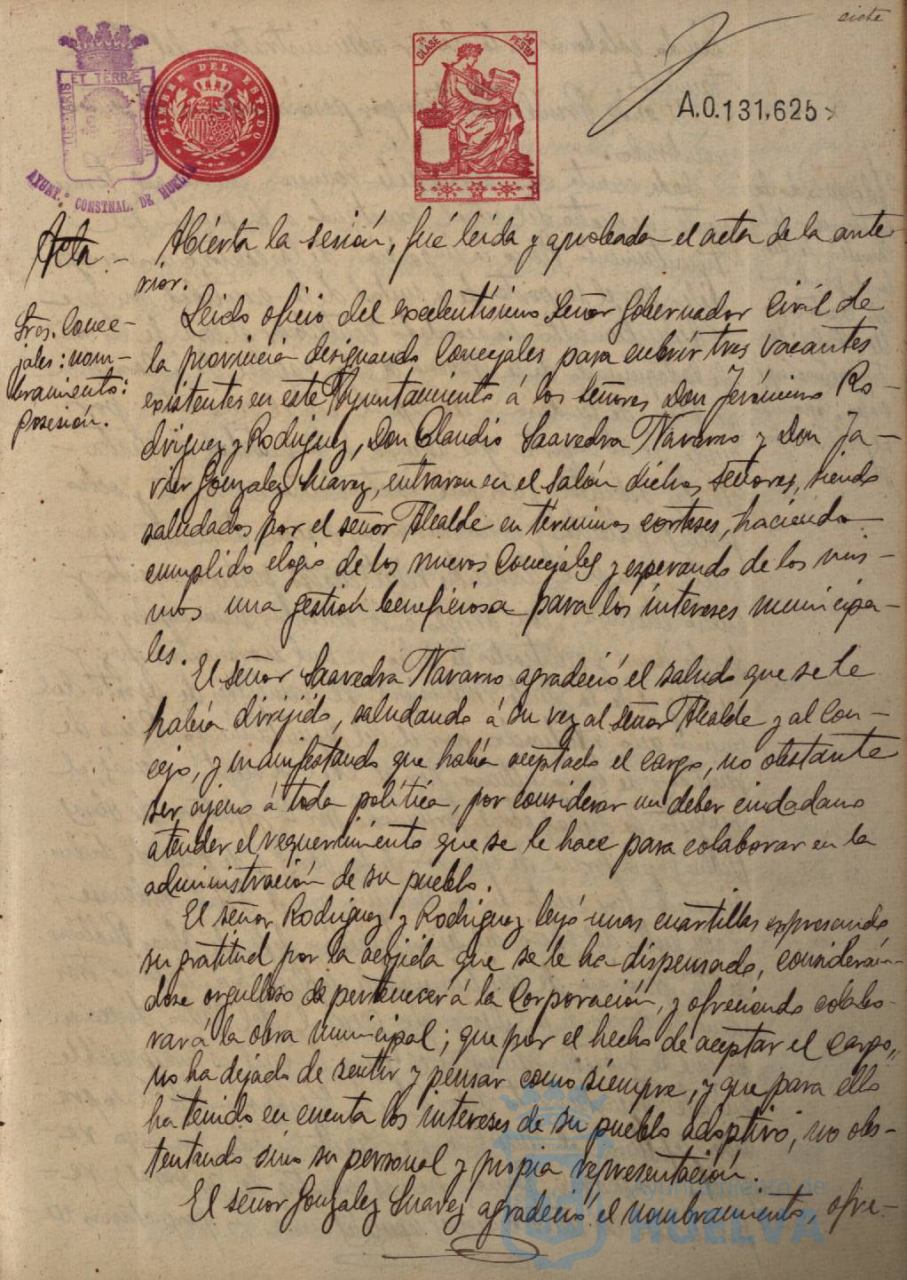 siete
ET TERRÆ
AYUNT.º CONSTNAL. DE HUELVA
TIMBRE DEL ESTADO
7ª CLASE
PESETA
A.0.131,625
Acta.-
Abierta la sesión, fué leida y aprobada el acta de la ante-
rior.
Sres. Conce-
jales: nom-
bramiento:
posesión.
Leido oficio del excelentísimo Señor Gobernador Civil de
la provincia designando Concejales para cubrir tres vacantes
existentes en este Ayuntamiento á los señores Don Jerónimo Ro-
dríguez y Rodríguez, Don Claudio Saavedra Navarro y Don Ja-
vier Gonzalez Suarez, entraron en el Salón dichos señores, siendo
saludados por el señor Alcalde en términos corteses, haciendo
cumplido elogio de los nuevos Concejales y esperando de los mis-
mos una gestión beneficiosa para los intereses municipa-
les.
El señor Saavedra Navarro agradeció el saludo que se le
había dirijido, saludando á su vez al señor Alcalde y al Con-
cejo, y manifestando que había aceptado el cargo, no obstante
ser ajeno á toda política, por considerar un deber ciudadano
atender el requerimiento que se le hace para colaborar en la
administración de su pueblo.
El señor Rodríguez y Rodríguez leyó unas cuartillas expresando
su gratitud por la acojida que se le ha dispensado, considerán-
dose orgulloso de pertenecer á la Corporación, y ofreciendo colabo-
rar á la obra municipal; que por el hecho de aceptar el cargo,
no ha dejado de sentir y pensar como siempre, y que para ello
ha tenido en cuenta los intereses de su pueblo adoptivo, no obs-
tentando sino su personal y propia representación.
El señor Gonzalez Suarez agradeció el nombramiento, ofre-
Ayuntamiento de
HUELVA